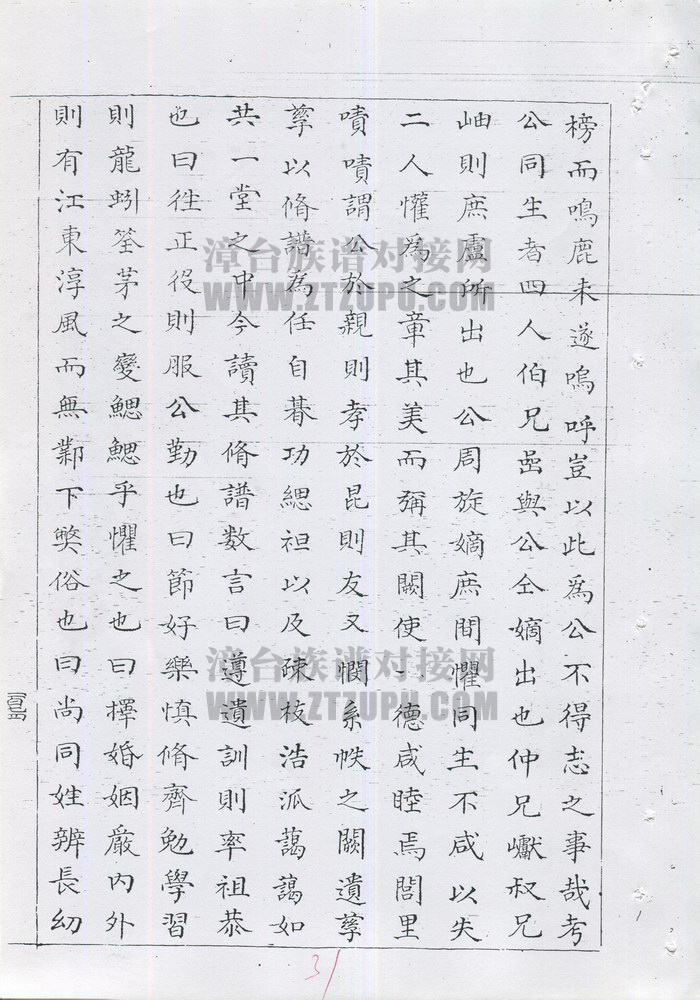 榜而鳴鹿未遂嗚呼豈以此為公不得志之事哉考
公同生者四人伯兄嵒與公仝嫡出也仲兄巘叔兄
岫則庶盧所出也公周旋嫡庶間懼同生不咸以失
二人懽為之章其美而彌其闕使一德咸睦焉閭里
嘖嘖謂公於親則孝於昆則友又憫系帙之闕遺孳
孳以脩譜為任自朞功緦袒以及疎枝浩派藹藹如
共一堂之中今讀其脩譜数言曰遵遺訓則率祖恭
也曰徃正役則服公勤也曰節好樂慎脩齊勉學習
則龍蚓筌茅之變鰓鰓乎懼之也曰擇婚姻嚴內外
則有江東淳風而無鄴下獘俗也曰尚同姓辨長幼
漳台族谱对接网
WWW.ZTZUPU.COM
漳台族谱对接网
WWW.ZTZUPU.COM
31